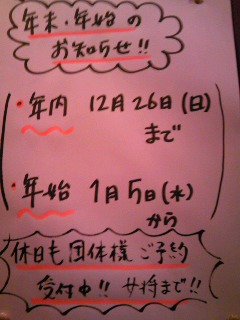 年末・年始の
お知らせ!!
・年内 12月26日(日)
まで
・年始 1月5日(水)
から
休日も団体様ご予約
受付中!! 女将まで!!